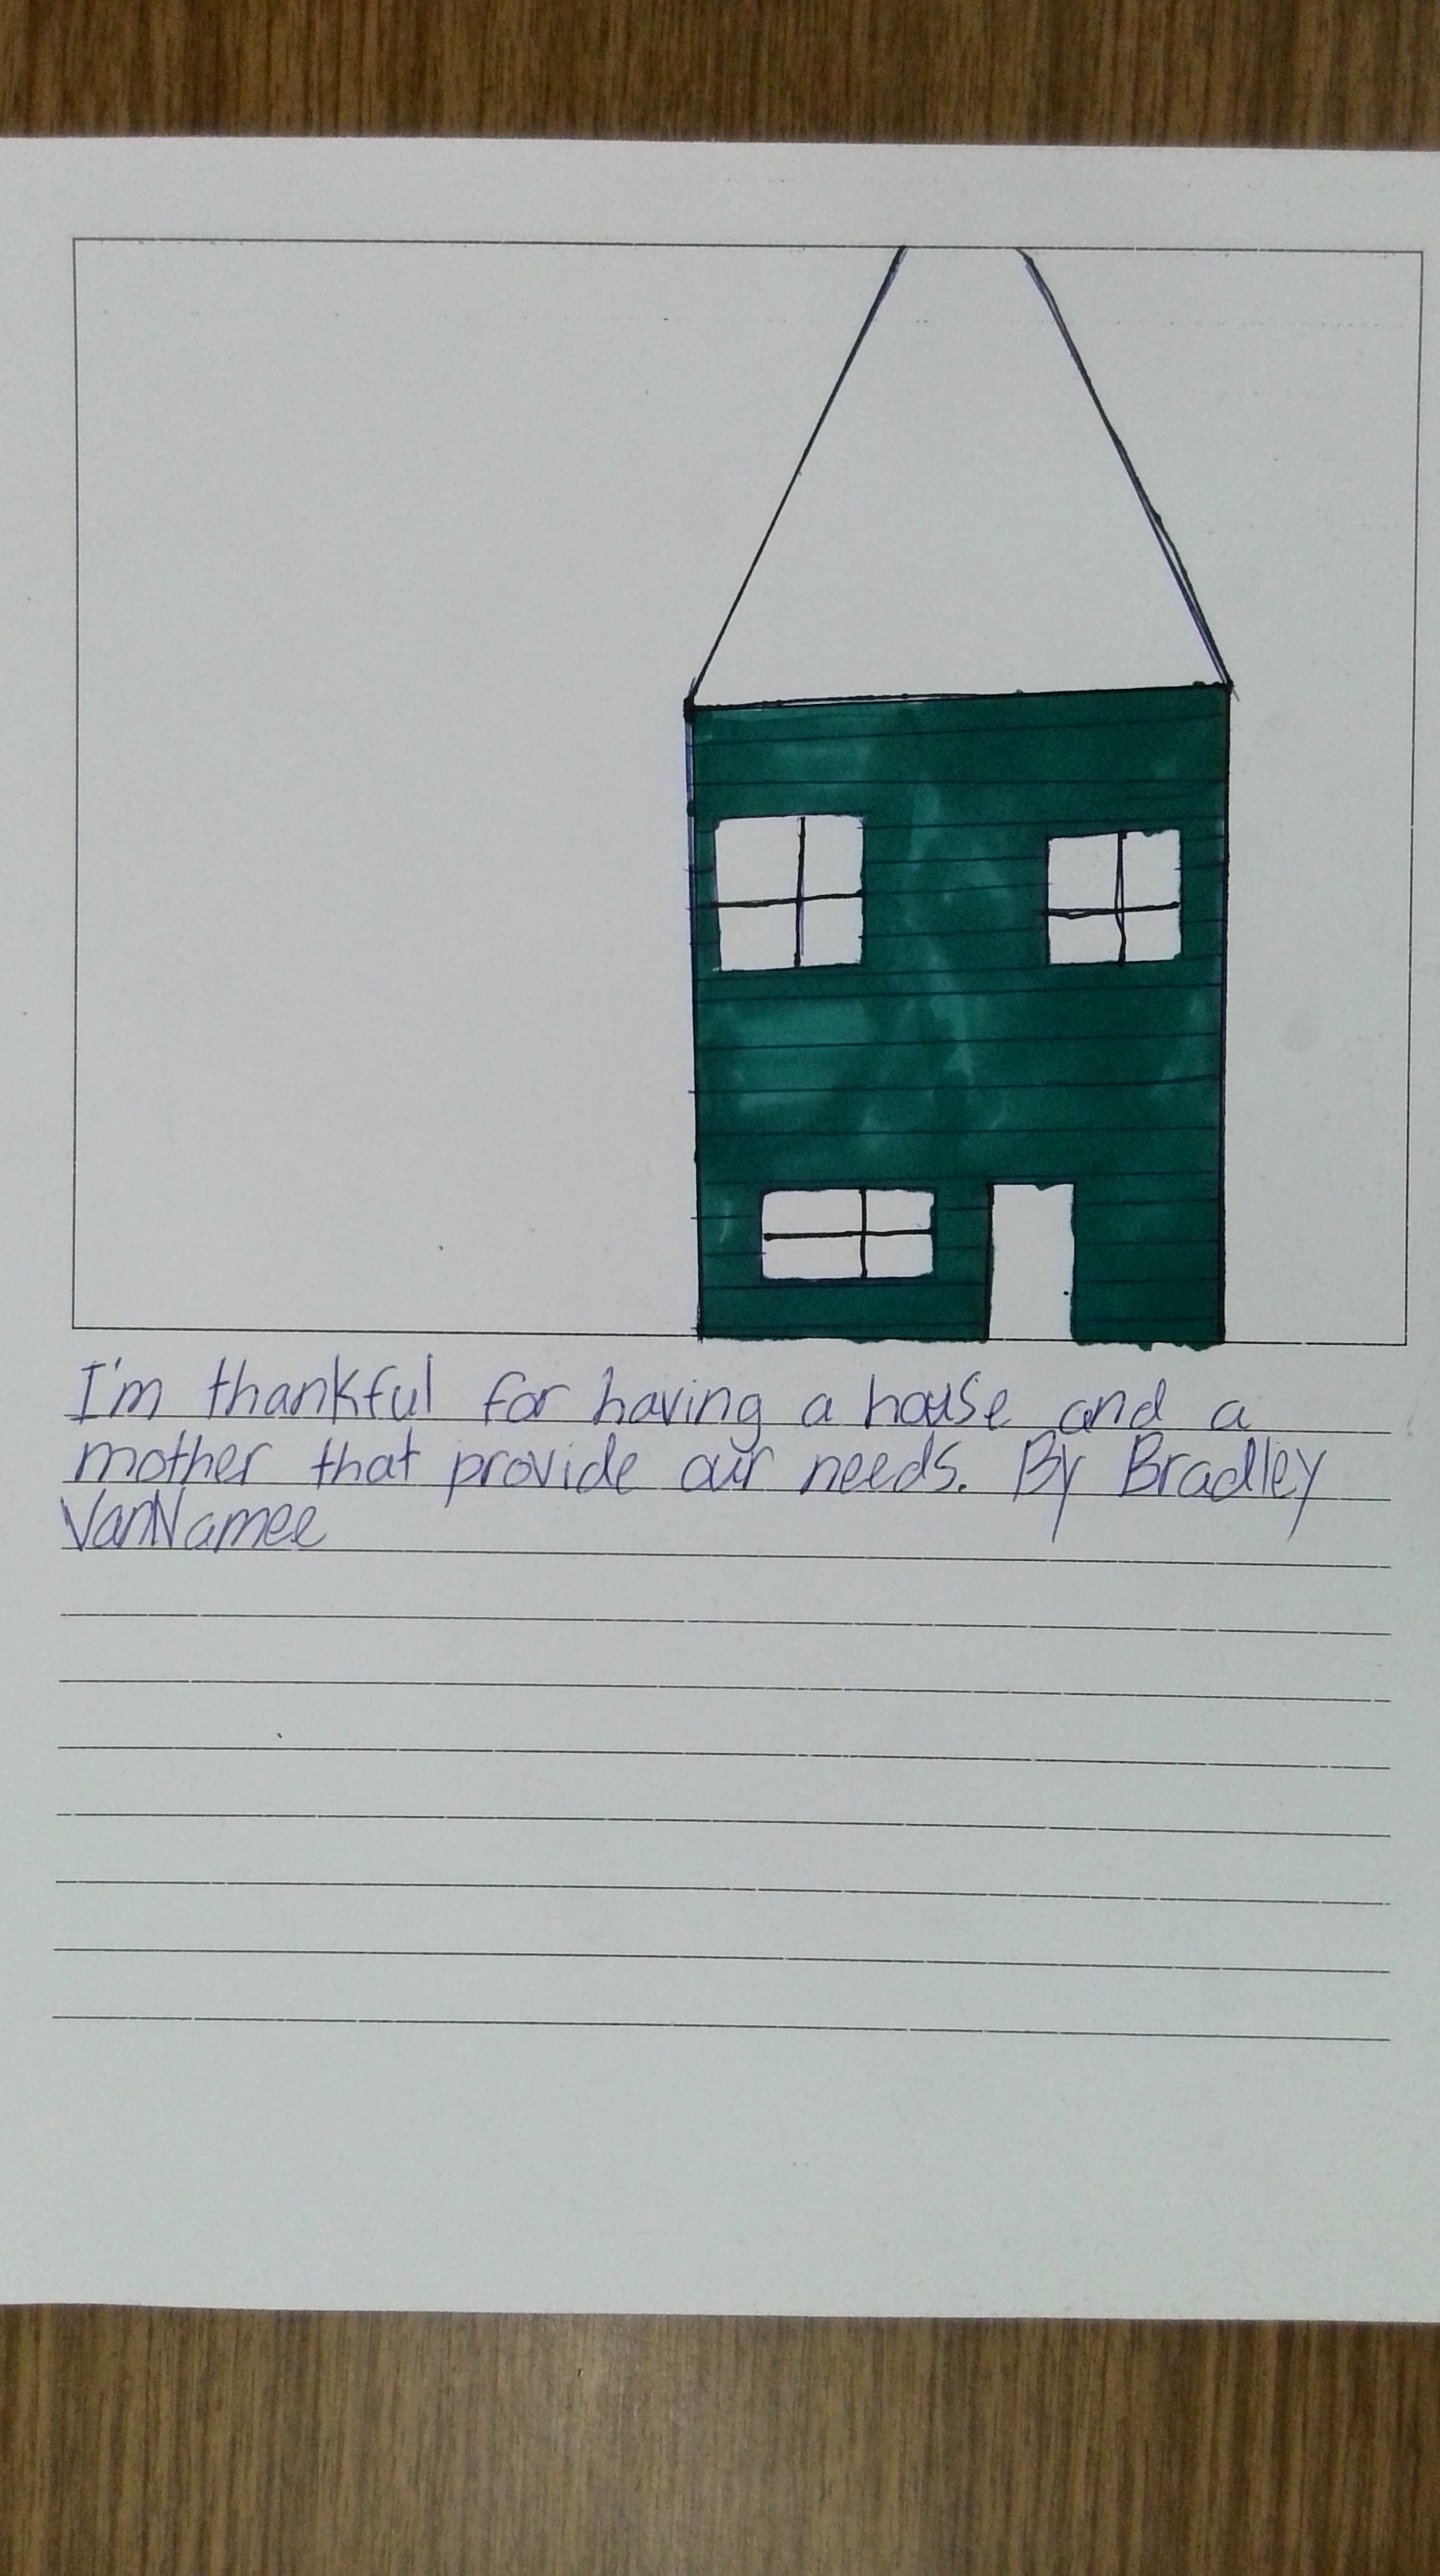 I'm thankful for having a house and a
mother that provide our needs. By Bradley
VanNamee